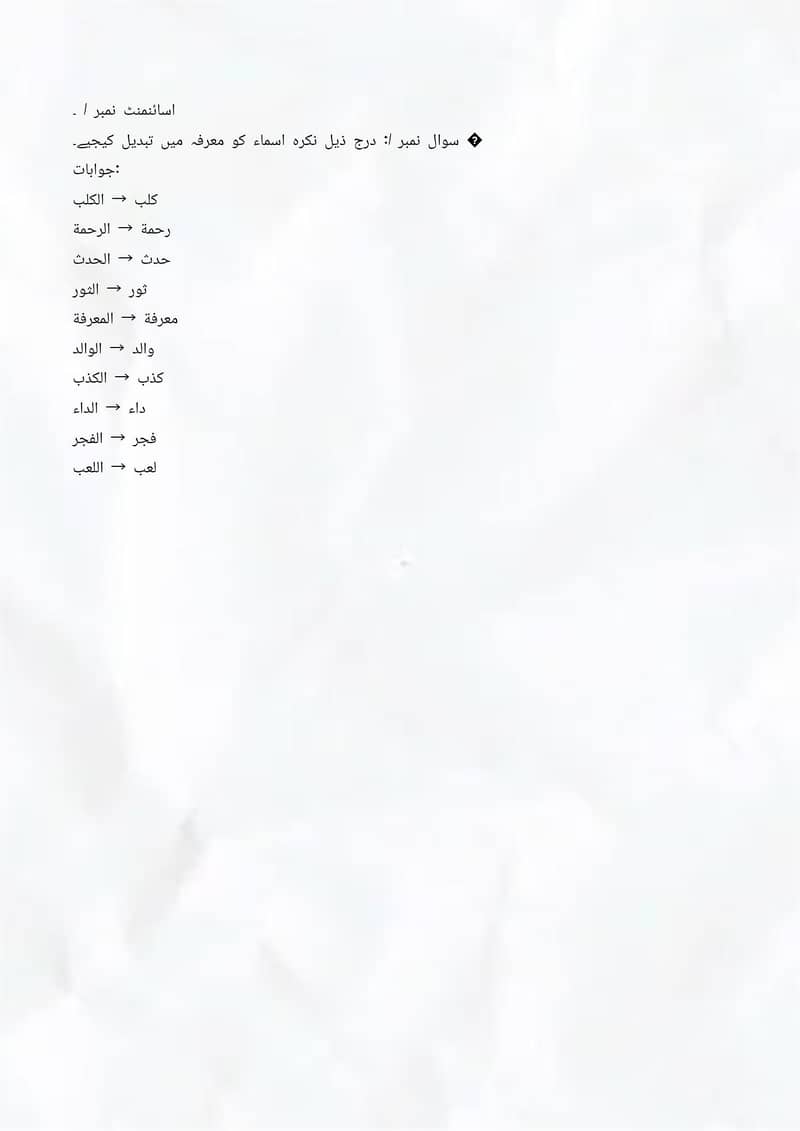 اسائنمنٹ نمبر ١ ۔
� سوال نمبر ١: درج ذیل نکرہ اسماء کو معرفہ میں تبدیل کیجیے۔
جوابات:
كلب → الكلب
رحمة → الرحمة
حدث → الحدث
ثور → الثور
معرفة → المعرفة
والد → الوالد
كذب → الكذب
داء → الداء
فجر → الفجر
لعب → اللعب